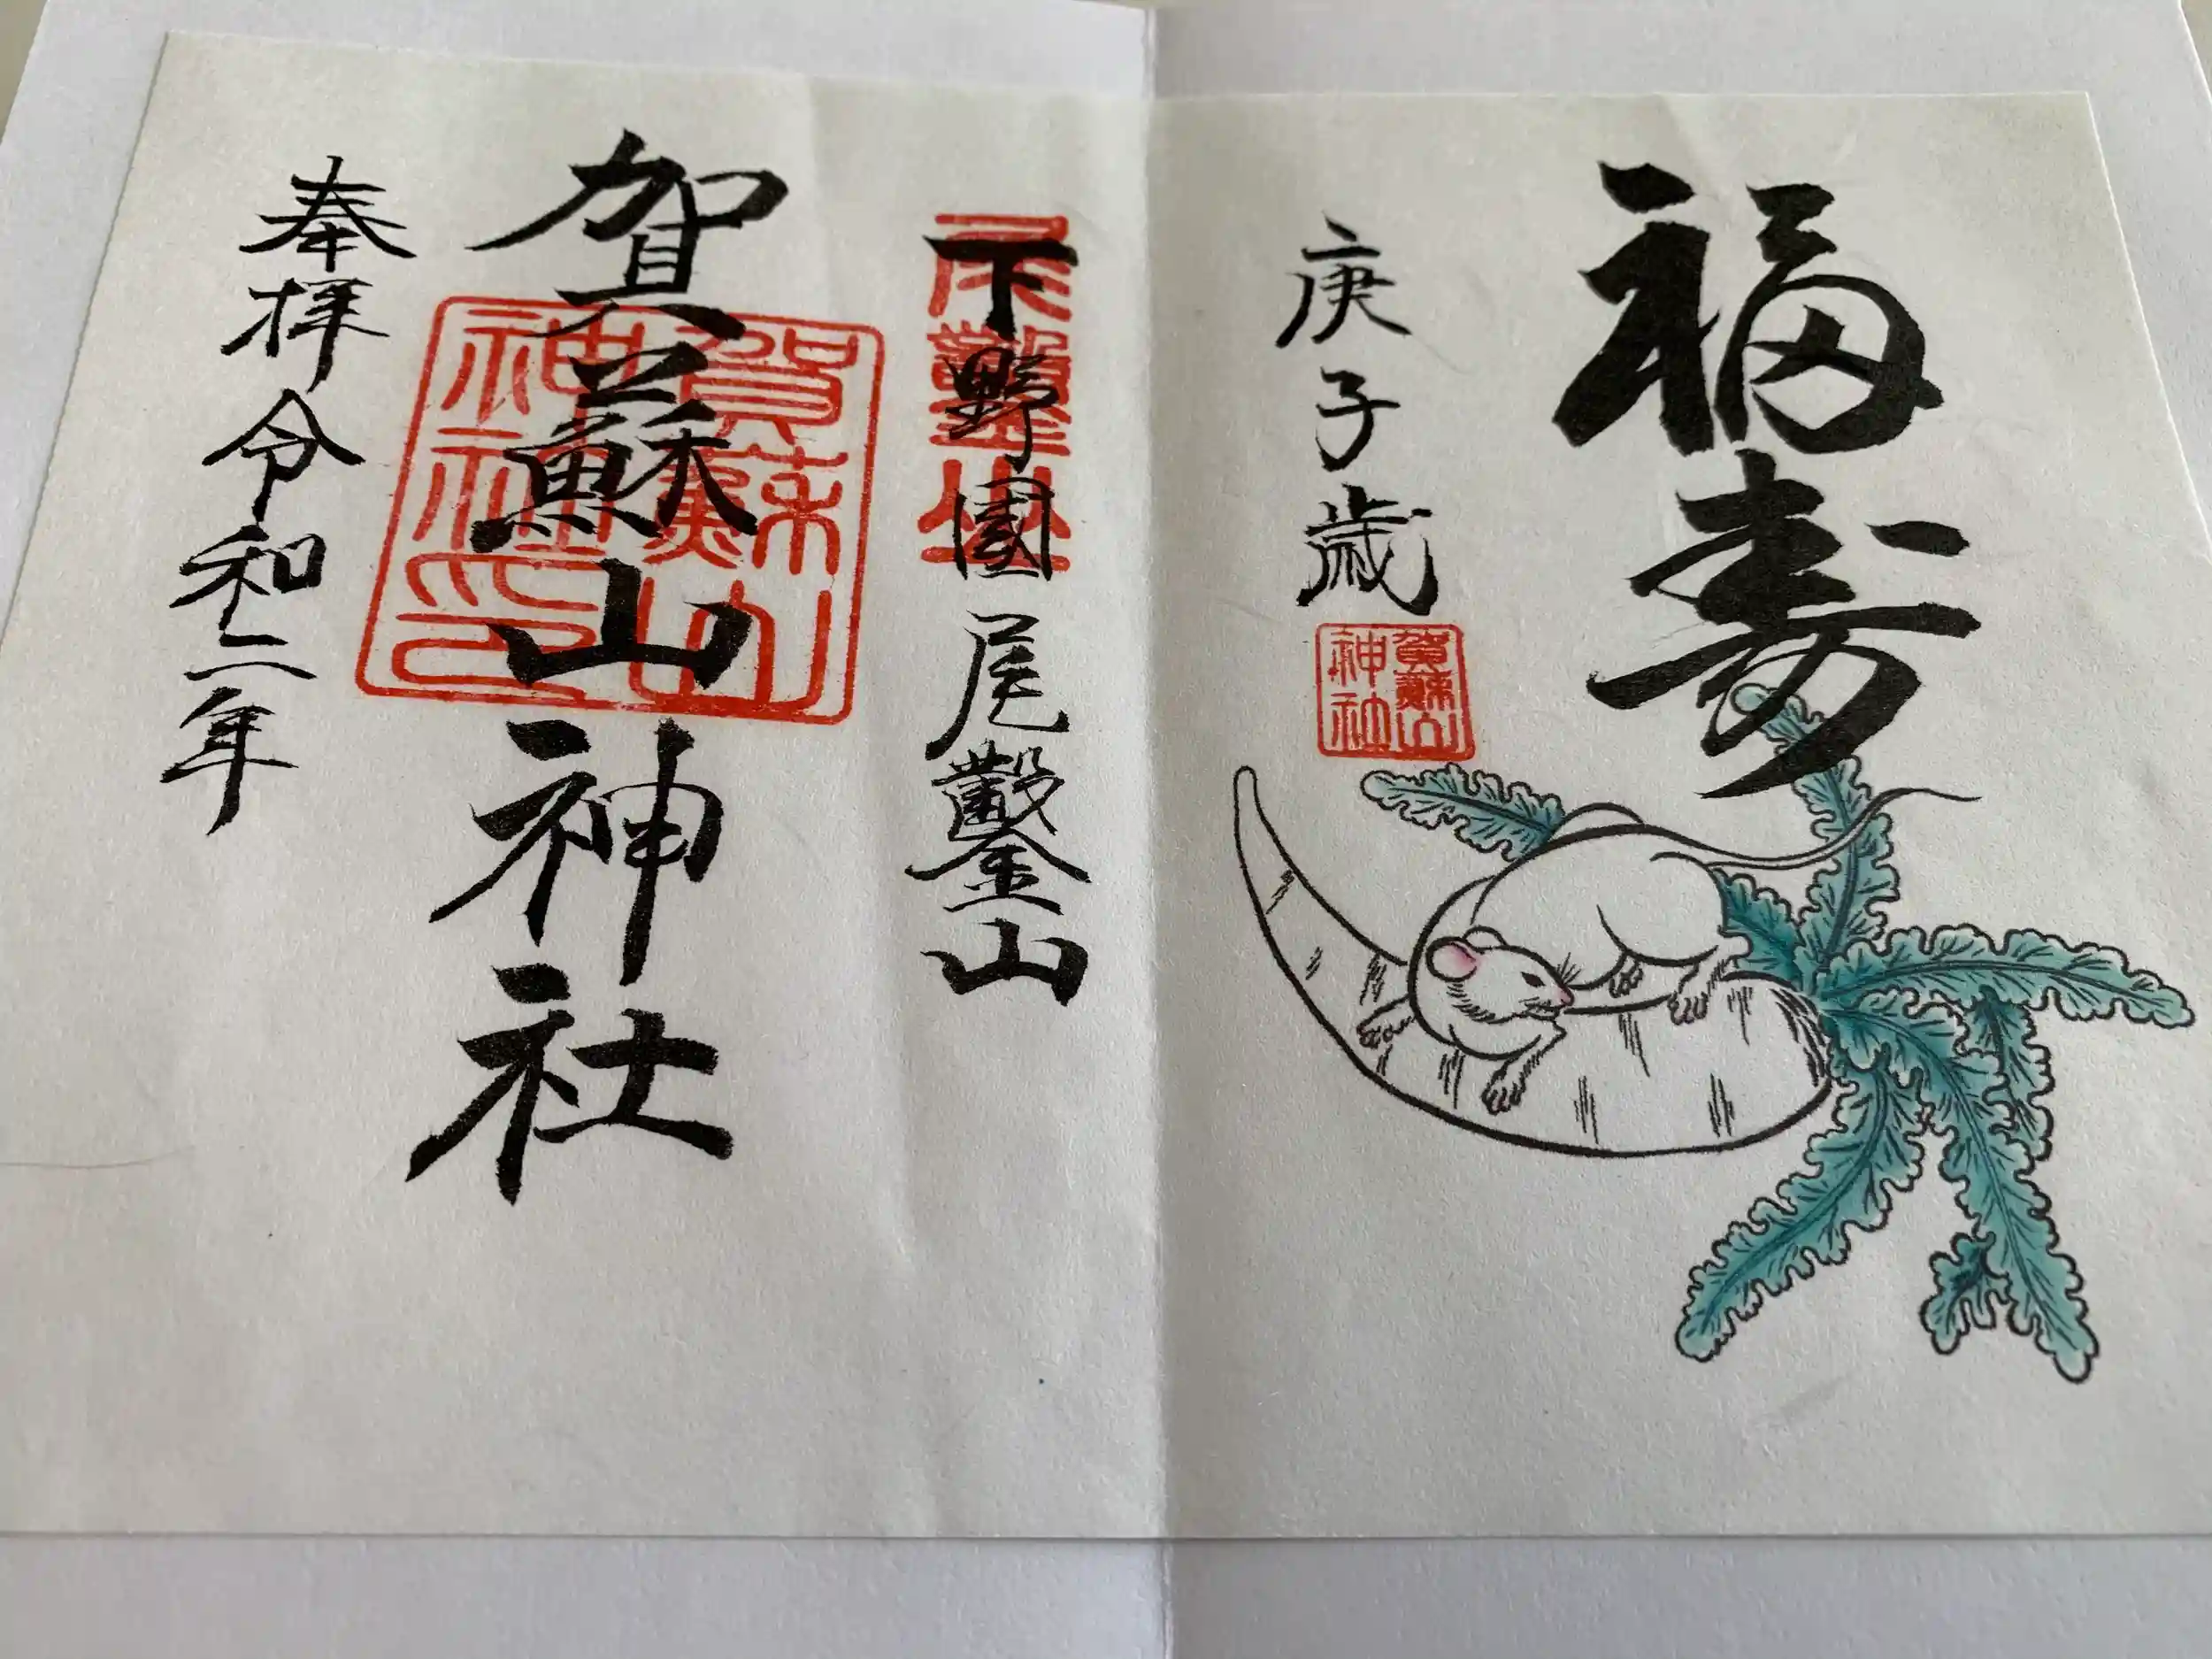 福寿
庚子歳
賀蘇山神社
下野國尾鑿山
尾鑿山
賀蘇山神社
賀蘇山神社印
奉拝令和二年